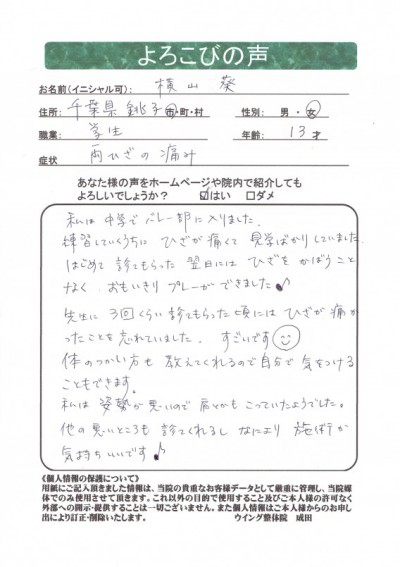 よろこびの声
お名前(イニシャル可): 横山 葵
住所: 千葉県 銚子 市・町・村 性別: 男・女
職業: 学生 年齢: 13才
症状 両ひざの痛み
あなた様の声をホームページや院内で紹介しても
よろしいでしょうか? ☑はい □ダメ
私は中学でバレー部に入りました。
練習していくうちに ひざが痛くて 見学ばかりしていました。
はじめて 診てもらった 翌日には ひざを かばうこと
なく、おもいきり プレーが できました♪
先生に 3回くらい 診てもらった 頃には ひざが 痛か
ったことを 忘れていました。 すごいです☺
体の つかい方も 教えてくれるので 自分で 気をつける
こともできます。
私は 姿勢が 悪いので 肩とかも こっていたようでした。
他の 悪いところも 診てくれるし なにより 施術が
気持ちいいです♪
《個人情報の保護について》
用紙にご記入頂きました情報は、当院の貴重なお客様データとして厳重に管理し、当院媒
体でのみ使用させて頂きます。これ以外の目的で使用すること及びご本人様の許可なく
外部への開示・提供することは一切ございません。また個人情報はご本人様からのお申し
出により訂正・削除いたします。 ウイング整体院 成田